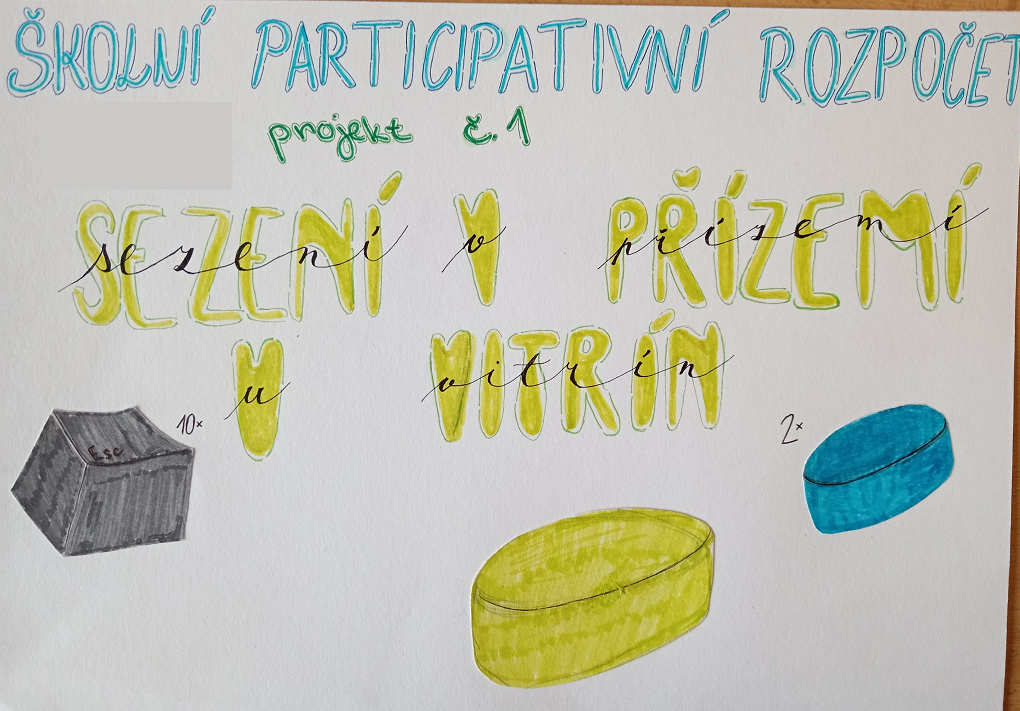 ŠKOLNÍ PARTICIPATIVNÍ ROZPOČET
projekt č.1
SEZENÍ V PŘÍZEMÍ
sezení v přízemí
U VITRÍN
u vitrín
10x
2x
Esc